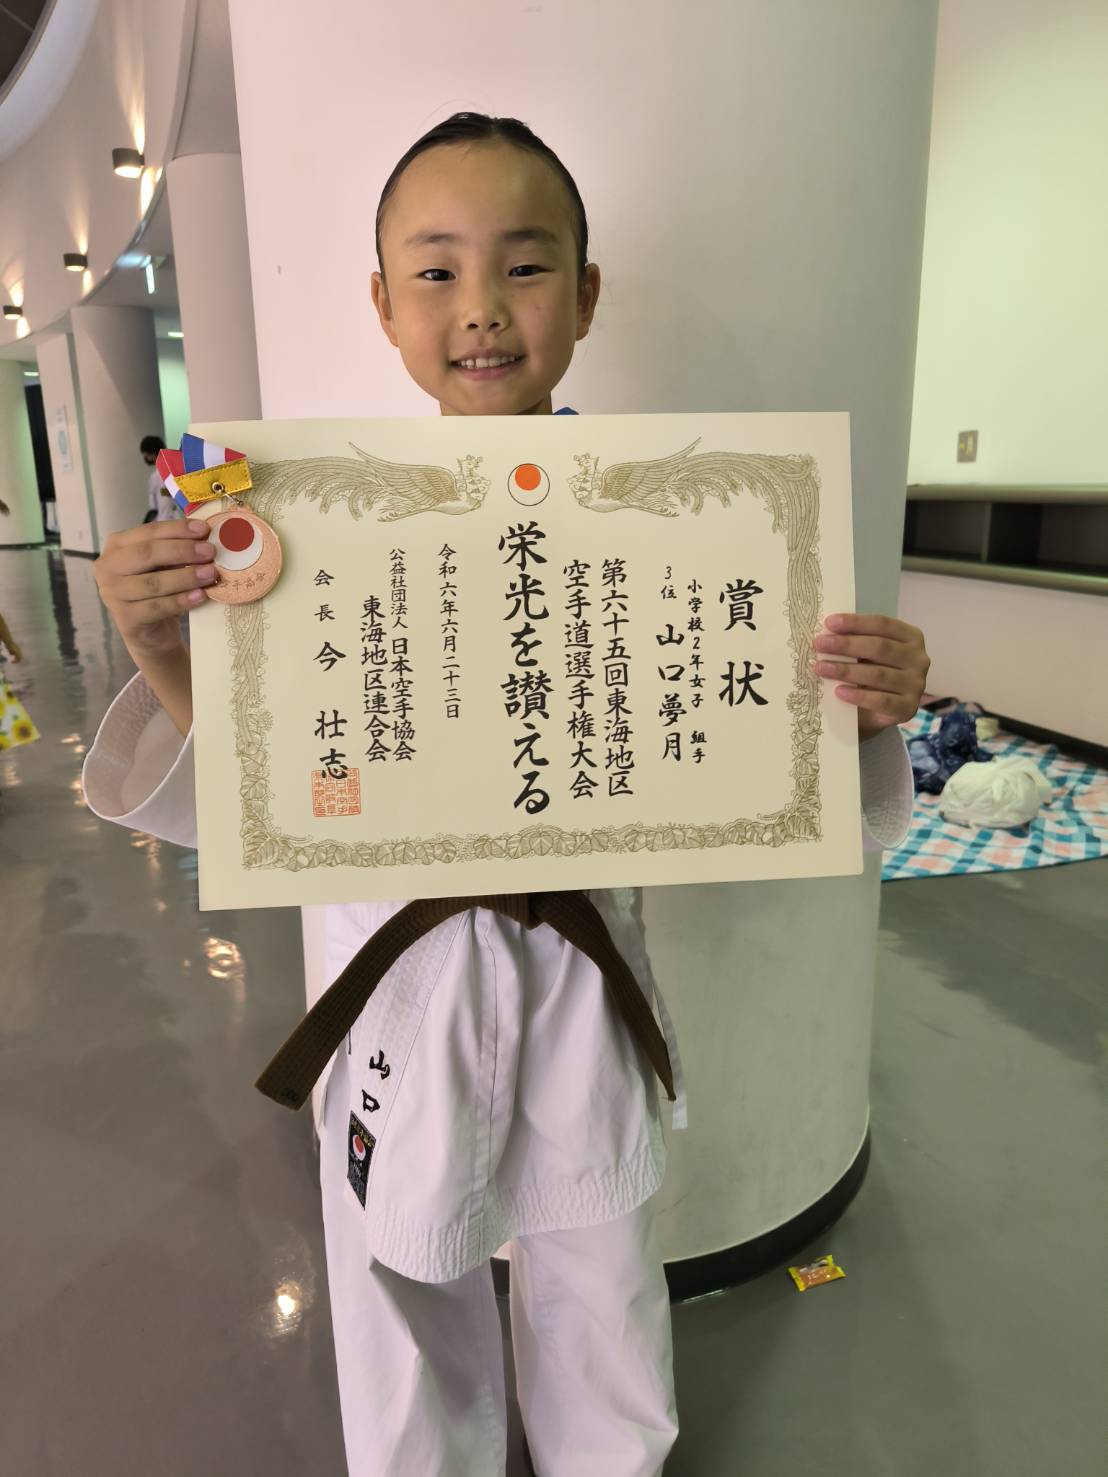 賞状
小学校2年女子 組手
3位 山口夢月
第六十五回東海地区
空手道選手権大会
栄光を讃える
令和六年六月二十三日
公益社団法人 日本空手協会
東海地区連合会
会長 今 壮志
山口